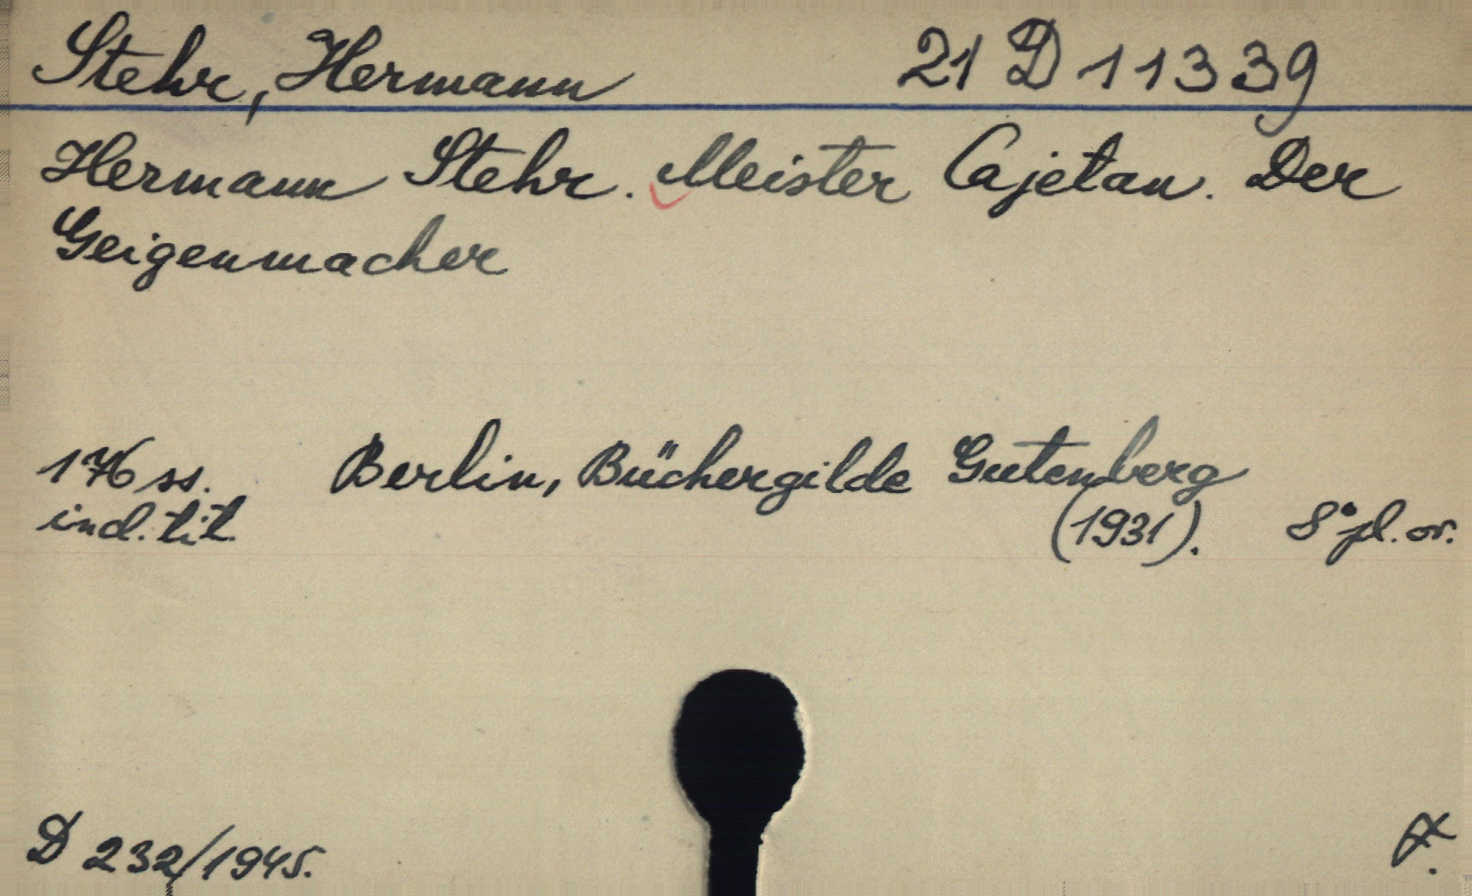 Stehr, Hermann 21 D 11339
Hermann Stehr. Meister Cajetan. Der
Geigenmacher
176 ss. Berlin, Büchergilde Gutenberg
incl. tit. (1931). 8° pl. or.
D 232/1945.